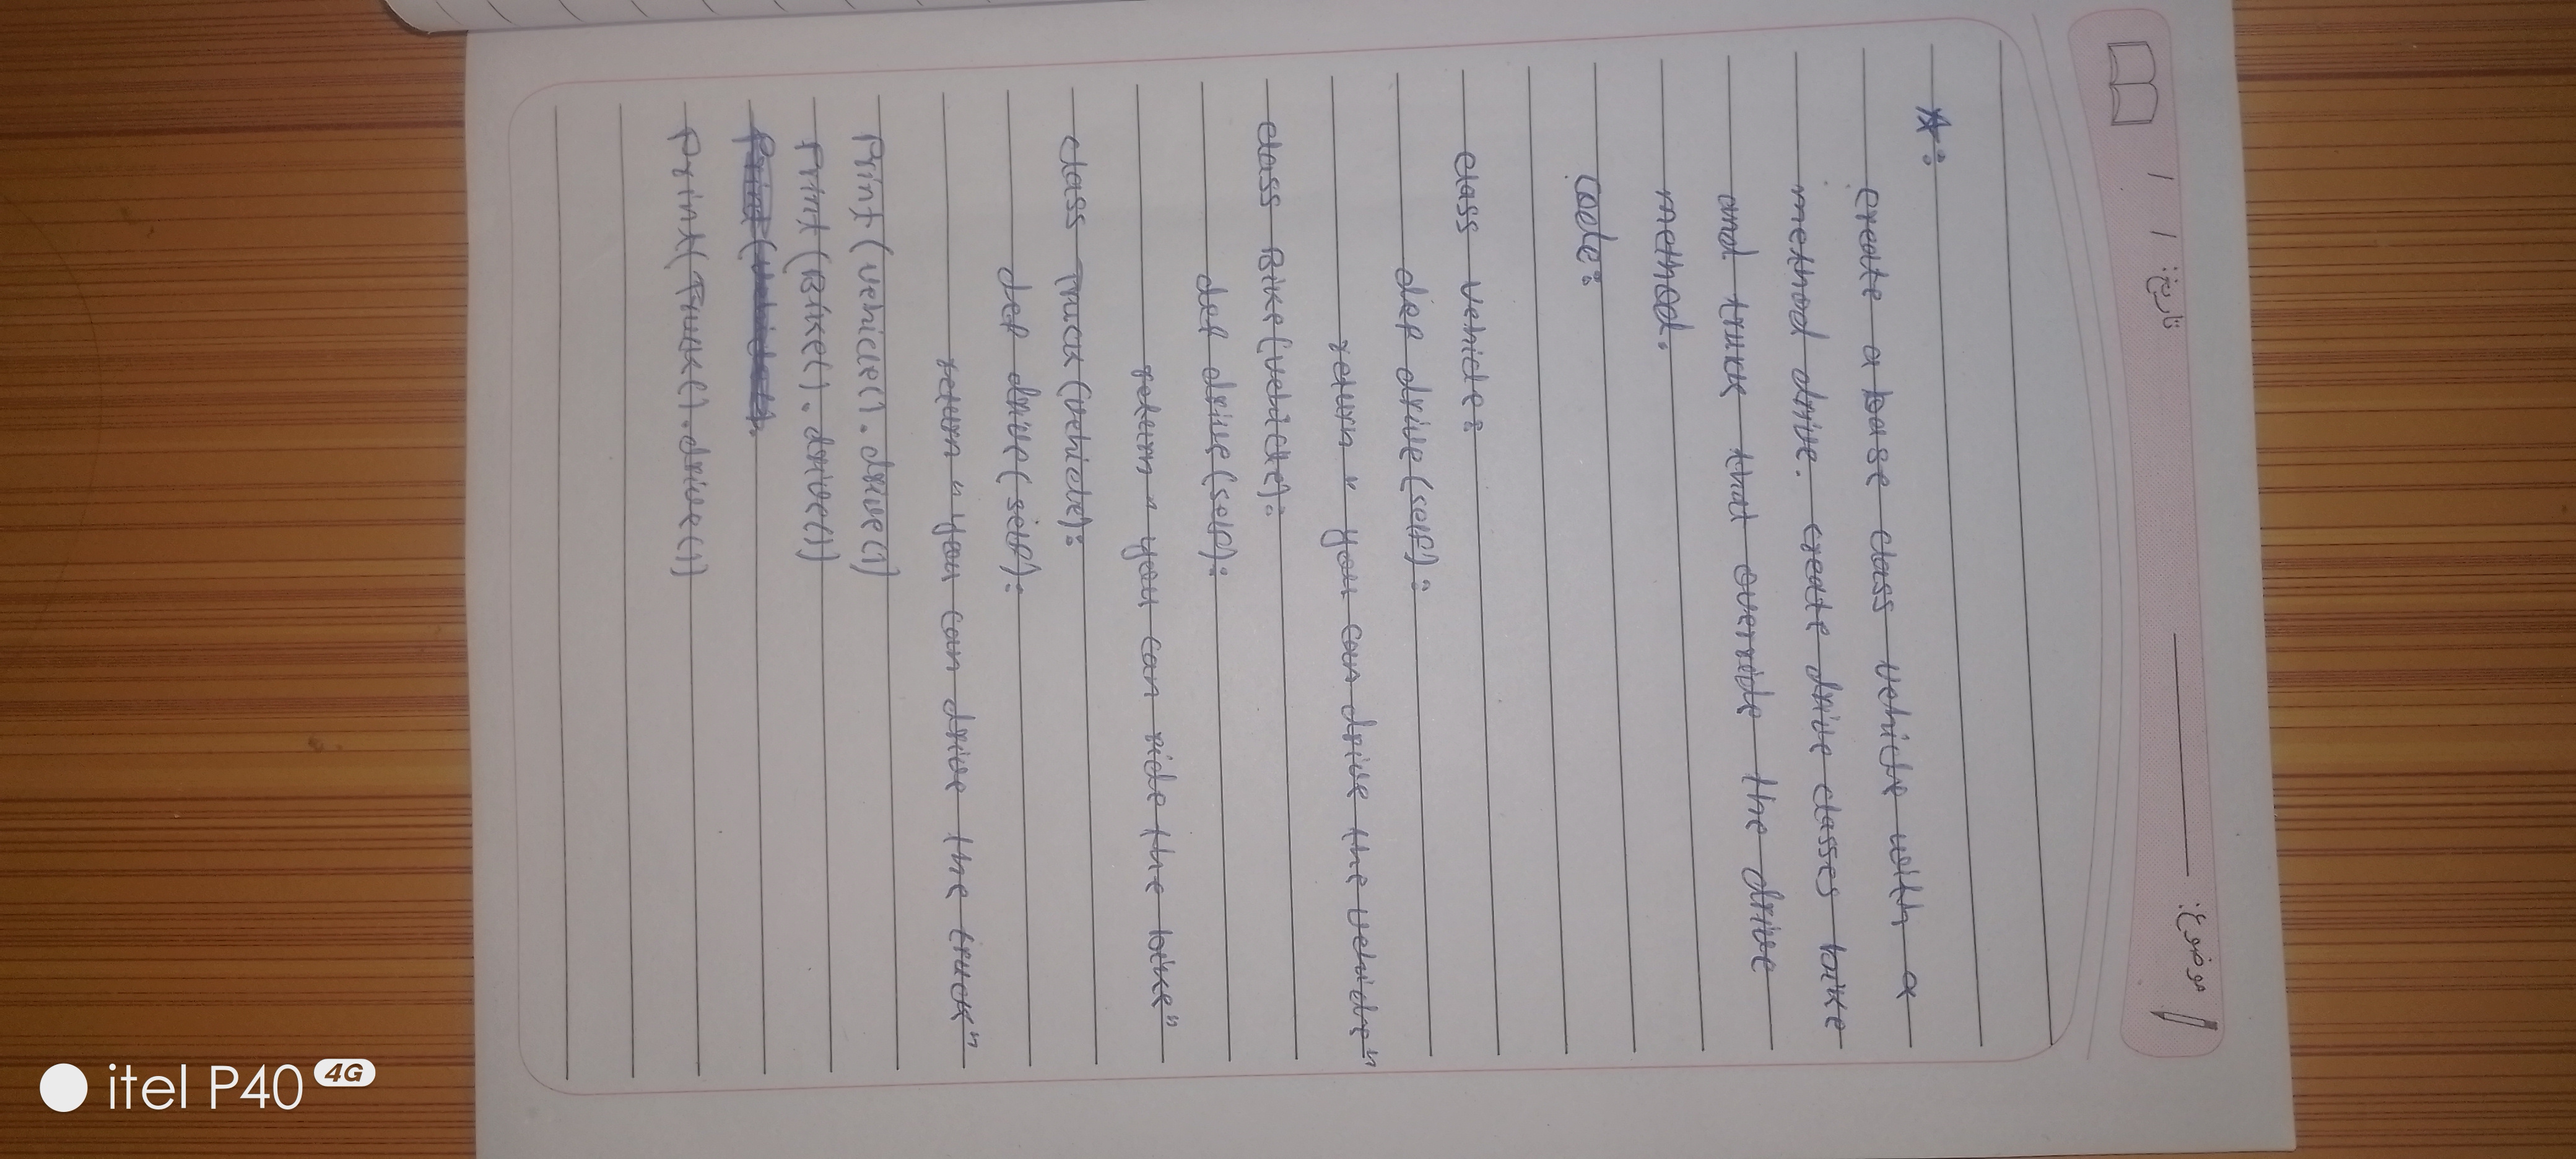 تاریخ: / /
موضوع:
*:
create a base class vehicle with a
method drive. create drive classes bike
and truck that override the drive
method.
Code:
class vehicle:
def drive(self):
return "you can drive the vehicle"
class Bike(vehicle):
def drive(self):
return "you can ride the bike"
class Truck(vehicle):
def drive(self):
return "you can drive the truck"
Print(vehicle().drive())
Print(Bike().drive())
Print(Truck().drive())
itel P40 4G